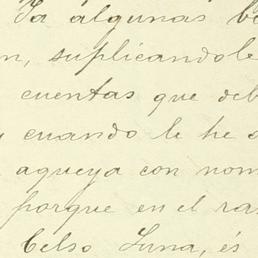 Ya algunas
n, suplicandole
cuentas que deb
y cuando le he
aqueya con nom
porque en el ra
Celso Luna, és